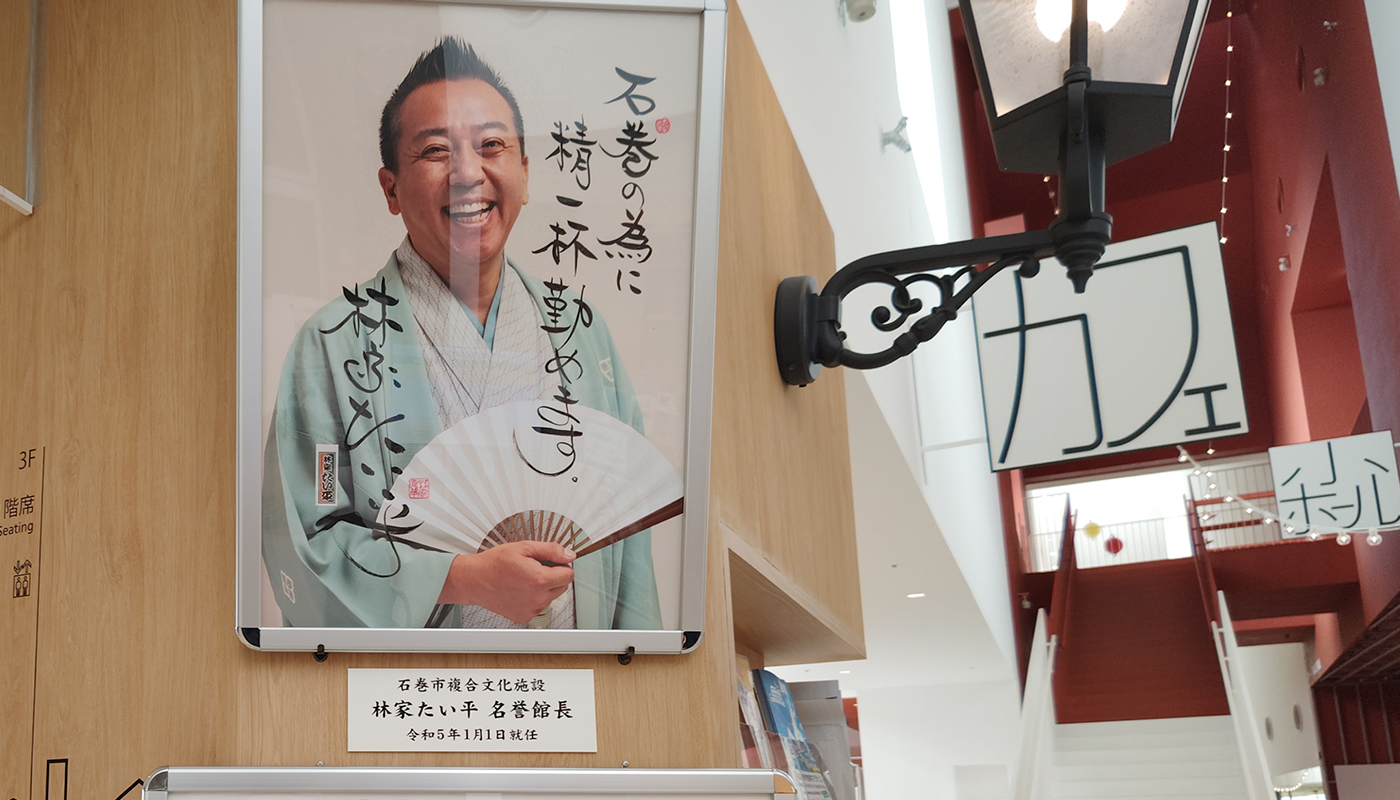 石巻の為に
精一杯勤めます。
林家たい平
林家たい平
石巻市複合文化施設
林家たい平 名誉館長
令和5年1月1日就任
3F
階席
Seating
カフェ
小ホール